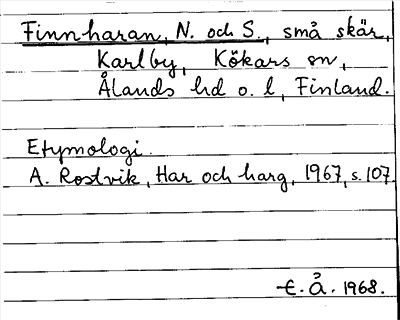 Finnharan, N. och S., små skär,
Karlby, Kökars sn,
Ålands hd o. l, Finland.
Etymologi.
A. Rostvik, Har och harg, 1967, s. 107.
t. Å. 1968.